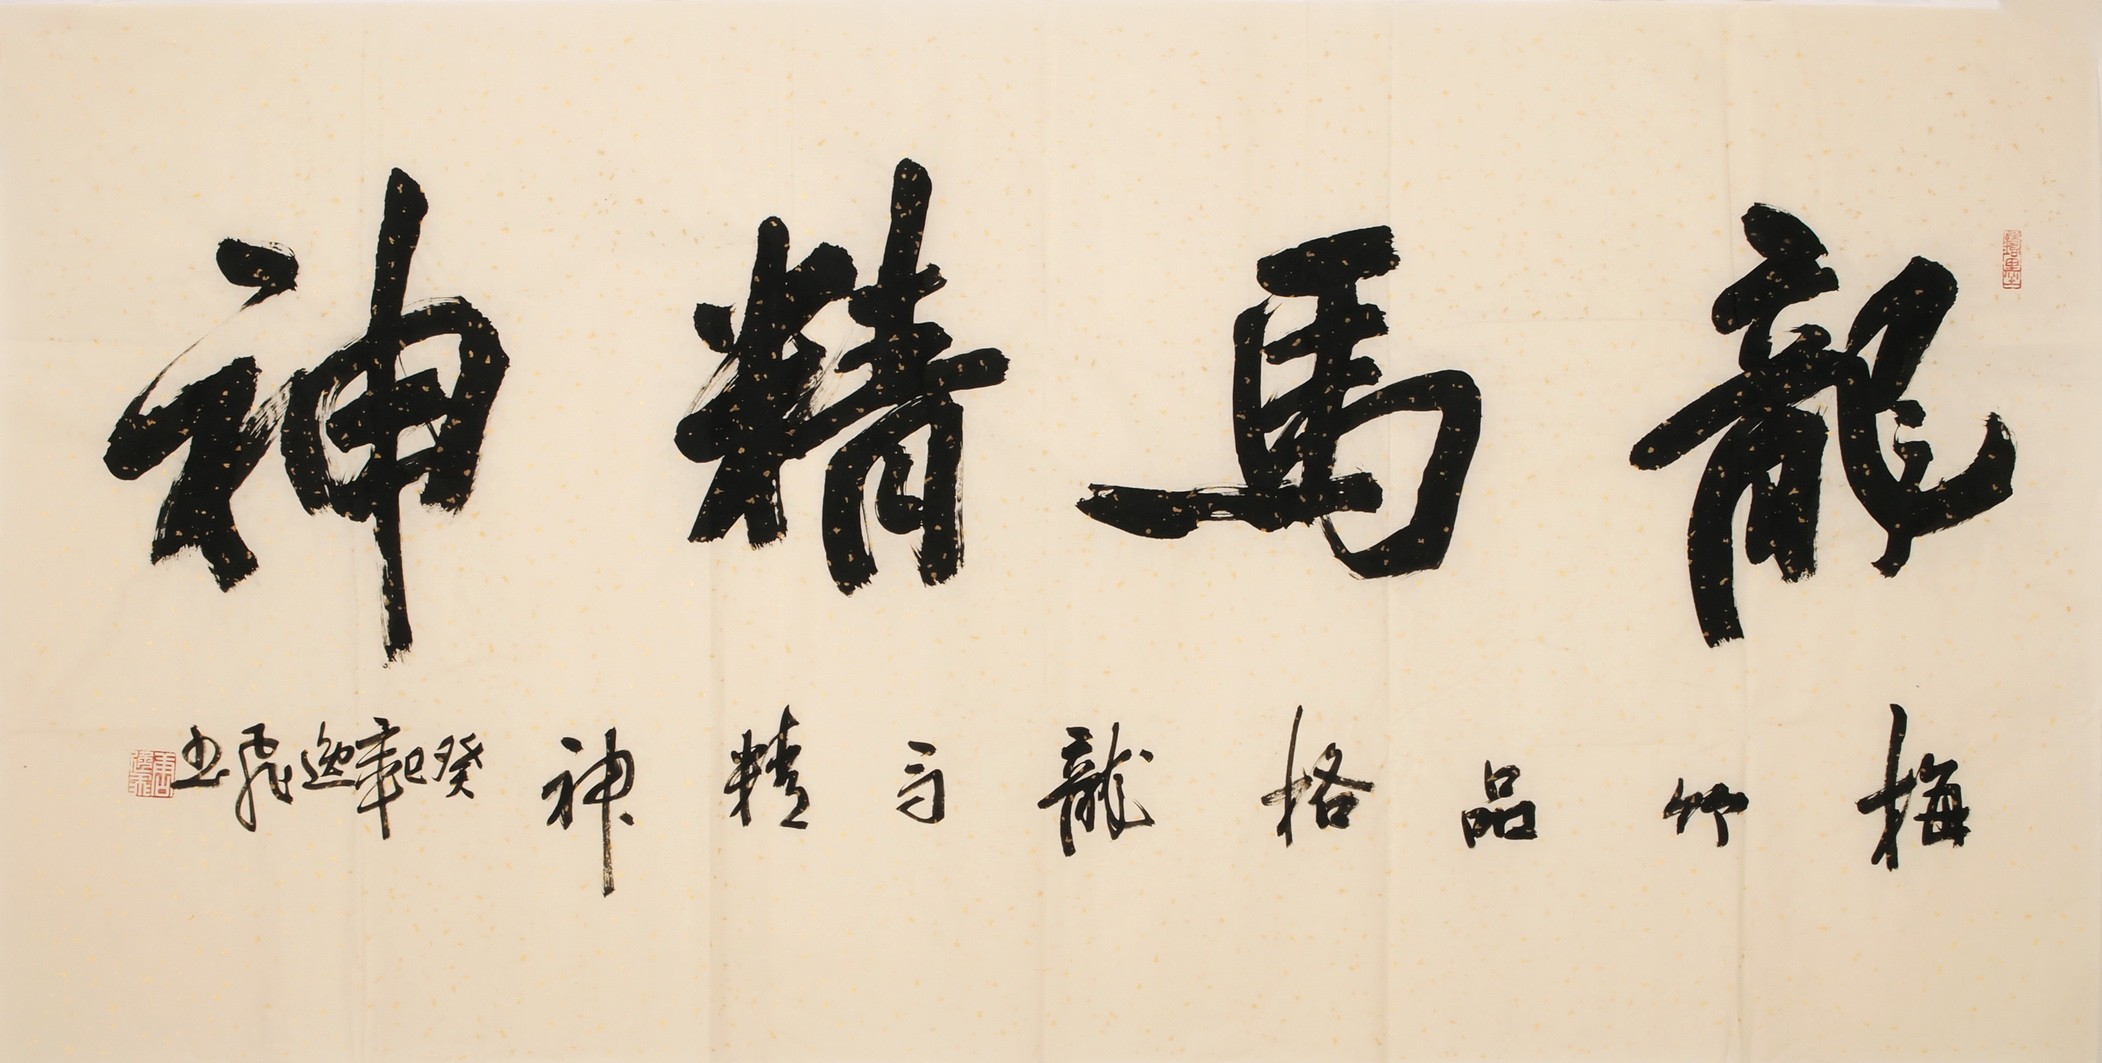 龍馬精神
梅竹品格龍馬精神
癸巳年逸飛書